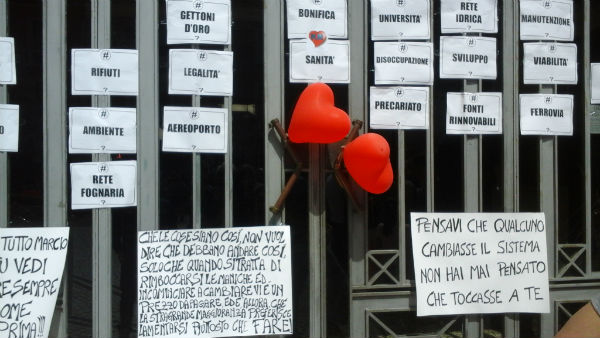 #
GETTONI
D'ORO
?
#
BONIFICA
?
#
UNIVERSITÀ
?
#
RETE
IDRICA
?
#
MANUTENZIONE
?
#
RIFIUTI
?
#
LEGALITA'
?
SANITÀ
?
#
DISOCCUPAZIONE
?
#
SVILUPPO
?
#
VIABILITA'
?
O
#
AMBIENTE
?
#
AEROPORTO
?
#
PRECARIATO
?
#
FONTI
RINNOVABILI
?
#
FERROVIA
?
#
RETE
FOGNARIA
?
TUTTO MARCIO
U VEDI
RE SEMPRE
OME
PRIMA!!!
CHE LE COSE SIANO COSÌ, NON VUOL
DIRE CHE DEBBANO ANDARE COSÌ,
SOLO CHE QUANDO SI TRATTA DI
RIMBOCCARSI LE MANICHE ED
INCOMINCIARE A CAMBIARE VI E' UN
PREZZO DA PAGARE ED E' ALLORA, CHE
LA STRAGRANDE MAGGIORANZA PREFERISCE
LAMENTARSI PIUTTOSTO CHE FARE!
PENSAVI CHE QUALCUNO
CAMBIASSE IL SISTEMA
NON HAI MAI PENSATO
CHE TOCCASSE A TE